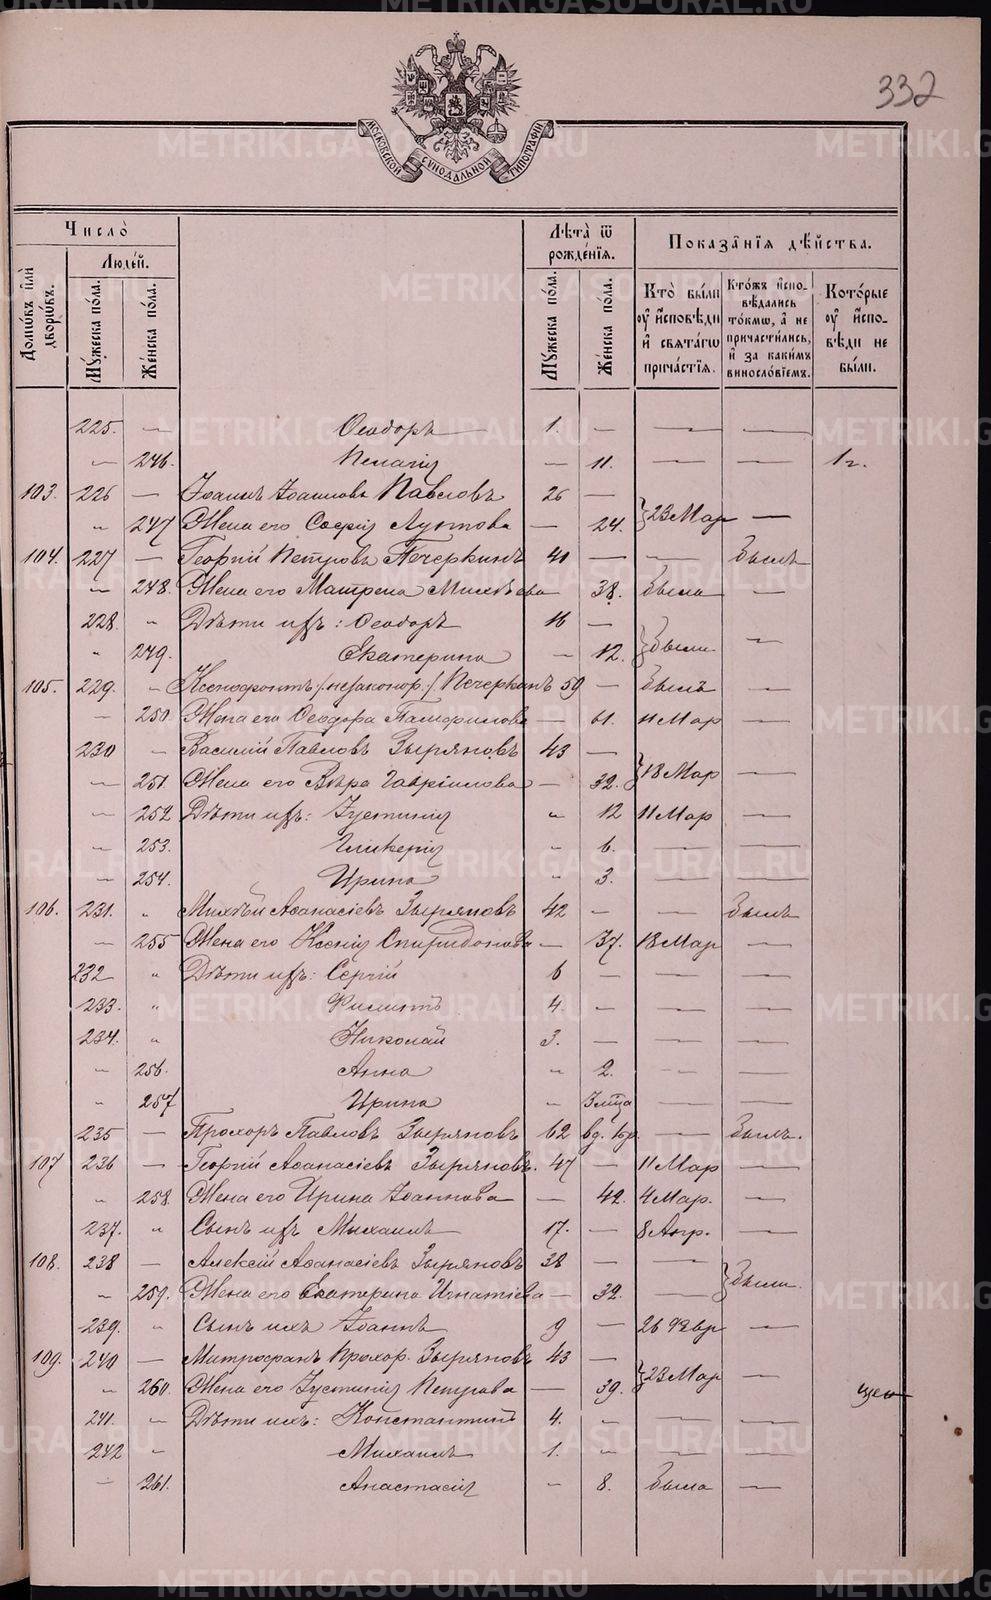 332
МОСКОВСКОЙ СѴНОДАЛЬНОЙ ТИПОГРАФІИ
Число̀
Людей.
Домѡвъ и҆лѝ дворѡвъ.
Мꙋжеска по́ла.
Же́нска по́ла.
Лѣ́та ѿ рожде́нїѧ.
Мꙋжеска по́ла.
Же́нска по́ла.
Показа̑нїѧ дѣ́йства.
Кто̀ бы́ли ᲂу҆ и҆сповѣ́ди и҆ свѧта́гѡ прича́стїѧ.
Кто́жъ и҆спо-вѣ́дались то́кмѡ, а҆ не причасти́лись, и҆ за каки́мъ винослові́емъ.
Кото́рые ᲂу҆ и҆спо-вѣ́ди не бы́ли.
225. — Ѳеодоръ 1. — — —
— 246. Пелагія — 11. — — 1 г.
103. 226 — Іоаннъ Іоанновъ Павловъ 26 —
" 247 Жена его Софія Аѵтова — 24. } 23 Мар —
104. 227 — Георгій Петровъ Печеркинъ 41 — — Былъ
" 248. Жена его Матрена Михѣева 38. Была —
228. " Дѣти ихъ: Ѳеодоръ 16 —
" 249. Екатерина — 12. } Были —
105. 229. " Ксенофонтъ /незаконор./ Печеркинъ 59 — Былъ
— 250. Жена его Ѳеодора Памфилова — 61. 11 Мар —
230 — Василій Павловъ Зыряновъ 43 —
— 251. Жена его Вѣра Гавріилова — 32. } 18 Мар —
— 252 Дѣти ихъ: Іустинія " 12 11 Мар —
— 253. Гликерія " 6. — —
— 254. Ирина " 3. — —
106. 231. " Михѣй Аѳанасіевъ Зыряновъ 42 — — Былъ
— 255 Жена его Ксенія Спиридонова — 37. 18 Мар —
232 " Дѣти ихъ: Сергій 6 — — —
233. " Филиппъ 4. — — —
234. " Николай 3. — — —
" 256. Анна " 2. — —
" 257 Ирина " — —
235 — Прохоръ Павловъ Зыряновъ 62 вд. — Былъ.
107 236 — Георгій Аѳанасіевъ Зыряновъ. 47 — 11 Мар —
" 258. Жена его Ирина Іоаннова — 42. 4 Мар. —
237. " Сынъ ихъ Михаилъ 17. — 8 Апр. —
108. 238 — Алексій Аѳанасіевъ Зыряновъ 38 — —
" 259. Жена его Екатерина Игнатіева — 32. — } Были
239. " Сынъ ихъ Іоаннъ 9 — 26 Февр —
109. 240 — Митрофанъ Прохор. Зыряновъ 43 —
" 260. Жена его Іустинія Петрова — 39. } 23 Мар —
241. " Дѣти ихъ: Константинъ 4. — — —
242 " Михаилъ 1. " — —
— 261. Анастасія " 8. Была —
METRIKI.GASO-URAL.RU